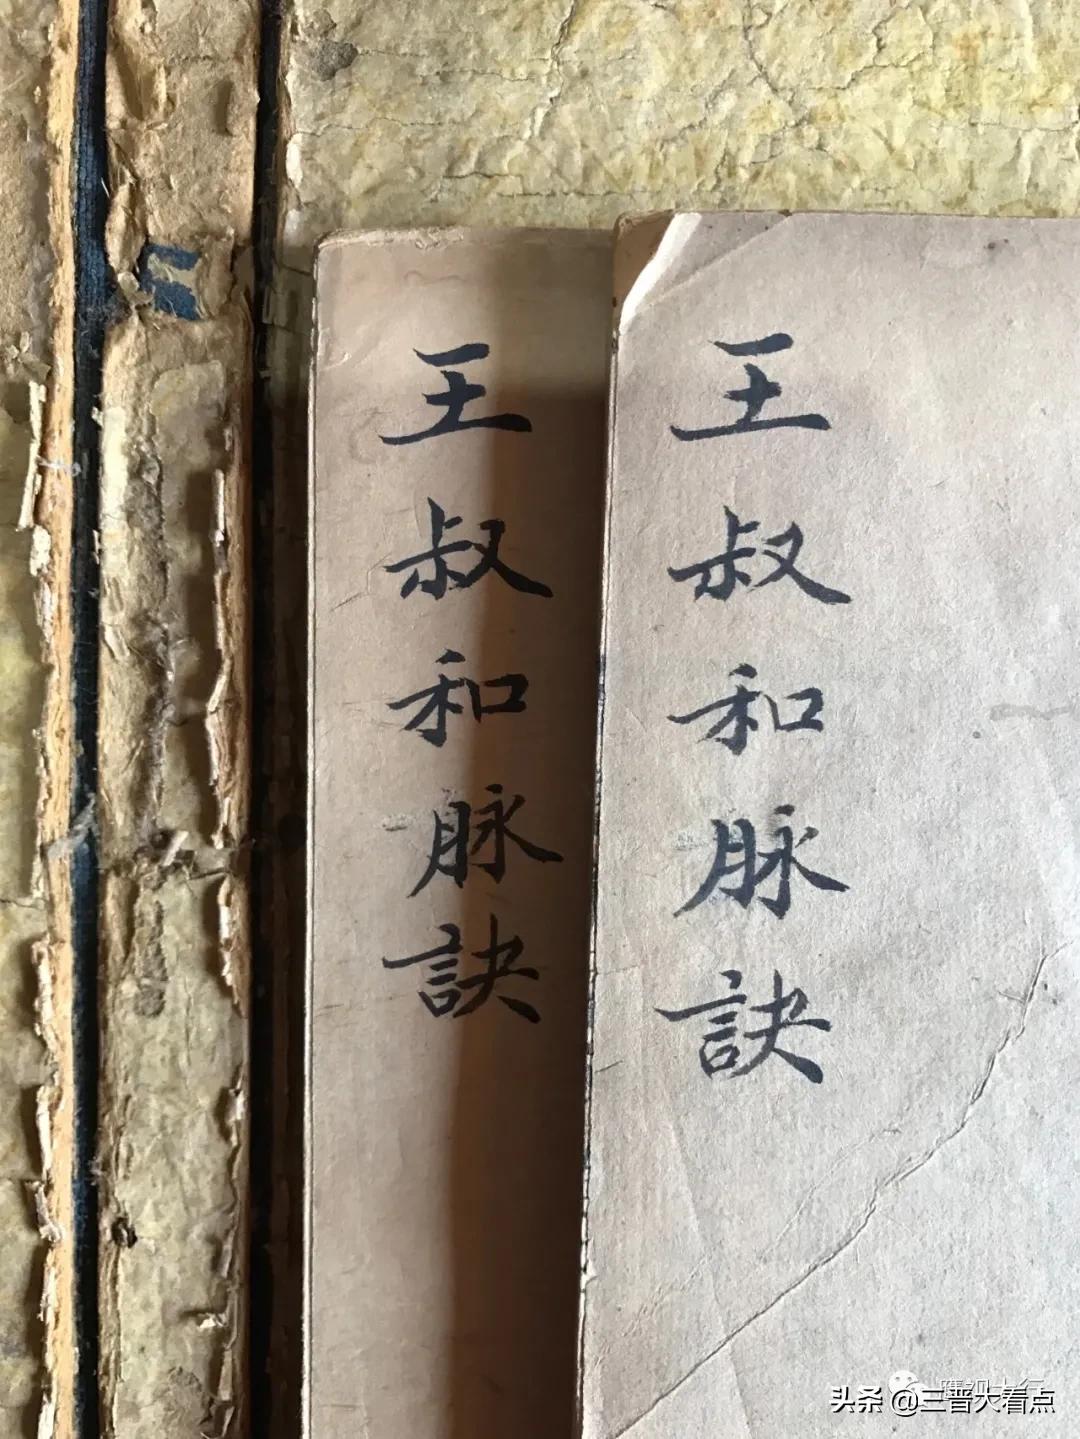 王叔和脉訣
王叔和脉訣
头条 @三晋大看点